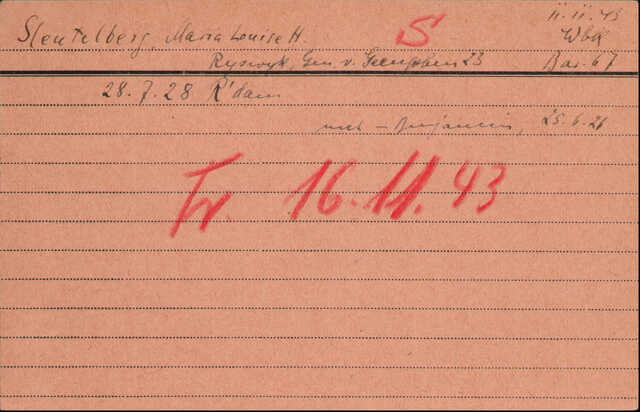 Sleutelberg, Maria Louise H. S 11.11.43
Wbk
Ryswyk, Gen. v. 23 Bar. 67
28.7.28 R'dam
– Benjamin, 25.6.21
Tr. 16.11.43